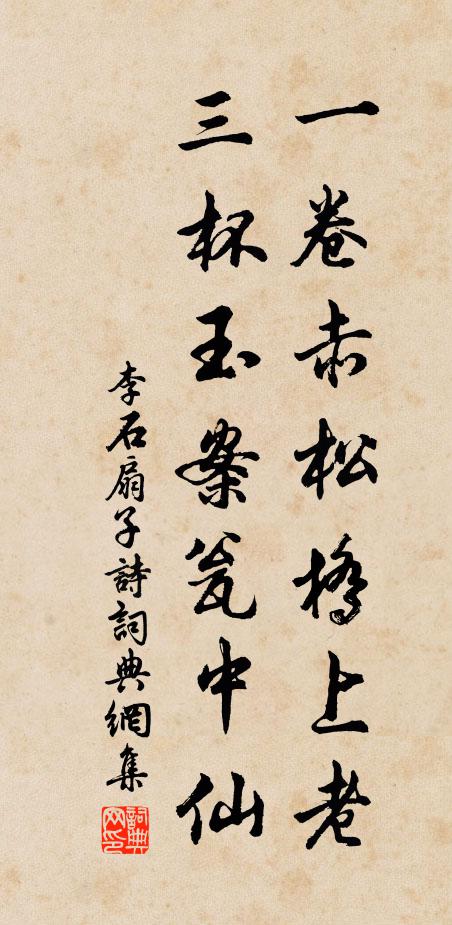 一卷赤松橋上老
三杯玉案瓮中仙
李石扇子詩詞典網集
詞典网印